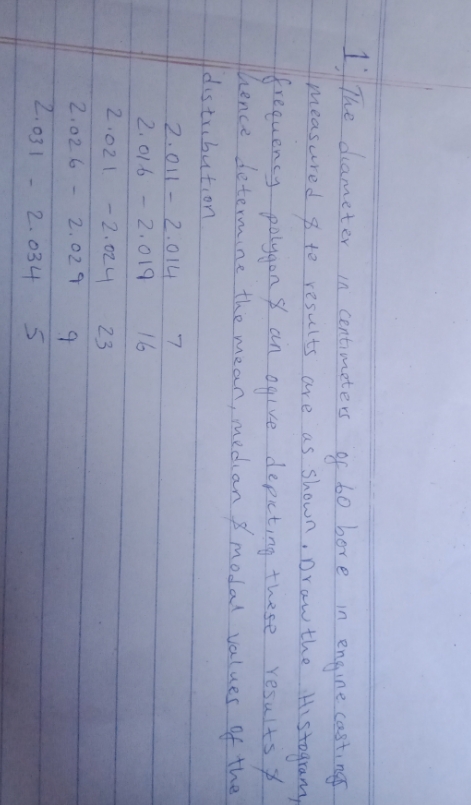 1. The diameter in centimeters of 60 bore in engine castings
measured & to results are as shown. Draw the Histogram,
frequency polygon & an ogive depicting these results &
hence determine the mean, median & modal values of the
distribution
2.011 - 2.014 7
2.016 - 2.019 16
2.021 - 2.024 23
2.026 - 2.029 9
2.031 - 2.034 5